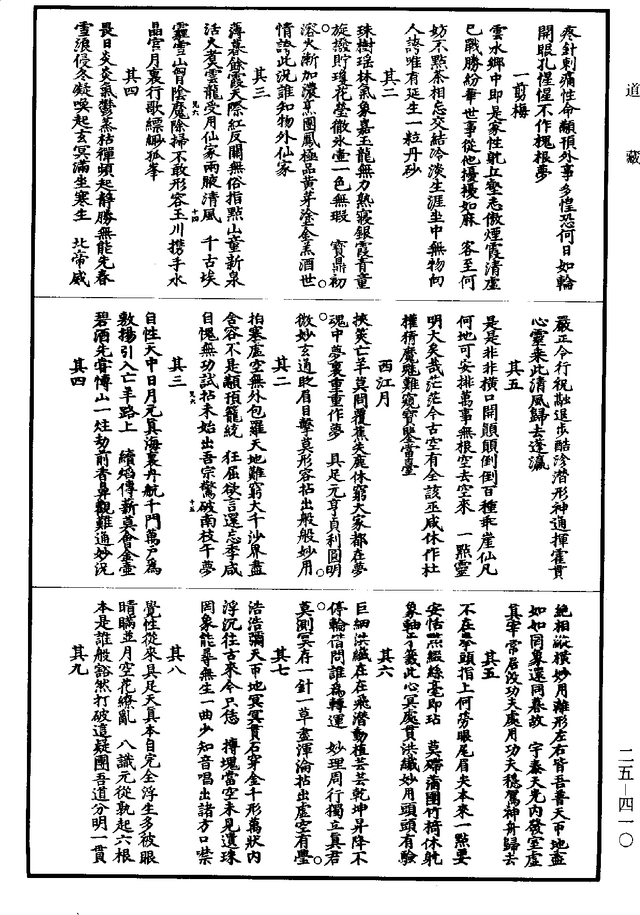 道藏
疼針刺痛性命顢頇外事多惶恐何日如輪
開眼孔惺惺不作槐根夢
一剪梅
雲水鄉中即是家性躭丘壑志傲煙霞清虛
已戰勝紛華世事從他擾擾如麻　客至何
妨不點茶相忘交結冷淡生涯坐中無物向
人誇唯有延生一粒丹砂
其二
珠樹瑤林氣象嘉玉龍無力熟寢銀霞青童
旋撥貯瓊花瑩徹氷壺一色無瑕　寶鼎初
溶火漸加濃烹團鳳極品黃芽塗金羔酒世
情誇此況誰知物外仙家
其三
薄暮餘霞天際紅反關無俗指點山童新泉
活火煑雲龍受用仙家兩腋清風　千古埃
霾雪山胷陰魔除掃不敢形容玉川携手水
晶宮月裏行歌縹緲孤峯
其四
畏日炎炎氣鬱蒸枯禪頻起靜勝無能先春
雪浪侵冬凝喚起玄冥滿坐寒生　北帝威
嚴正令行祝融退步酷沴潛形神通揮霍貫
心靈來此清風歸去蓬瀛
其五
是是非非橫口開顛顛倒倒百種乖崖仙凡
何地可安排萬事無根空去空來　一點靈
明大矣哉茫茫今古空有全該巫咸休作杜
權猜魔魅難窺寶鑒當臺
西江月
挾筴亡羊莫問覆蕉失鹿休窮大家都在夢
魂中夢裏重重作夢　具足元亨貞利圓明
微妙玄通眨眉目擊莫形容拈出般般妙用
其二
拍塞虛空無外包羅天地難窮大千沙界盡
含容不是顢頇籠統　狂屈欲言還忘季咸
自愧無功試拈未始出吾宗驚破南枝午夢
其三
自性天中日月元真海裏丹航千門萬戶為
敷揚引入亡羊路上　續焰傳薪莫會金壺
碧酒先嘗博山一炷劫前香鼻觀難通妙況
其四
絕相縱橫妙用離形左右皆吾普天帀地盡
如如罔象還同暮故　宇泰天光內發室虛
其宰常居沒功夫處用功夫穩駕神舟歸去
其五
不在拳頭指上何勞眼尾眉夫本來一點要
安恬點綴絲毫即玷　莫䟱蒲團竹椅休躭
象軸牙籤此心冥處貫洪纖妙用頭頭有驗
其六
巨細洪纖在在飛潛動植芸芸乾坤昇降不
停輪借問誰為轉運　妙理周行獨立真君
莫測冥存一針一草盡渾淪拈出虛空有璺
其七
浩浩瀰天帀地冥冥貫石穿金千形萬狀內
浮沉往古來今只恁　摶塊當空未見遺珠
罔象能尋無生一曲少知音唱出諸方口噤
其八
覺性從來具足天真本自完全浮生多被眼
睛瞞並月空花繚亂　八識元從孰起六根
本是誰般豁然打破這疑團吾道分明一貫
其九
二五—四一〇